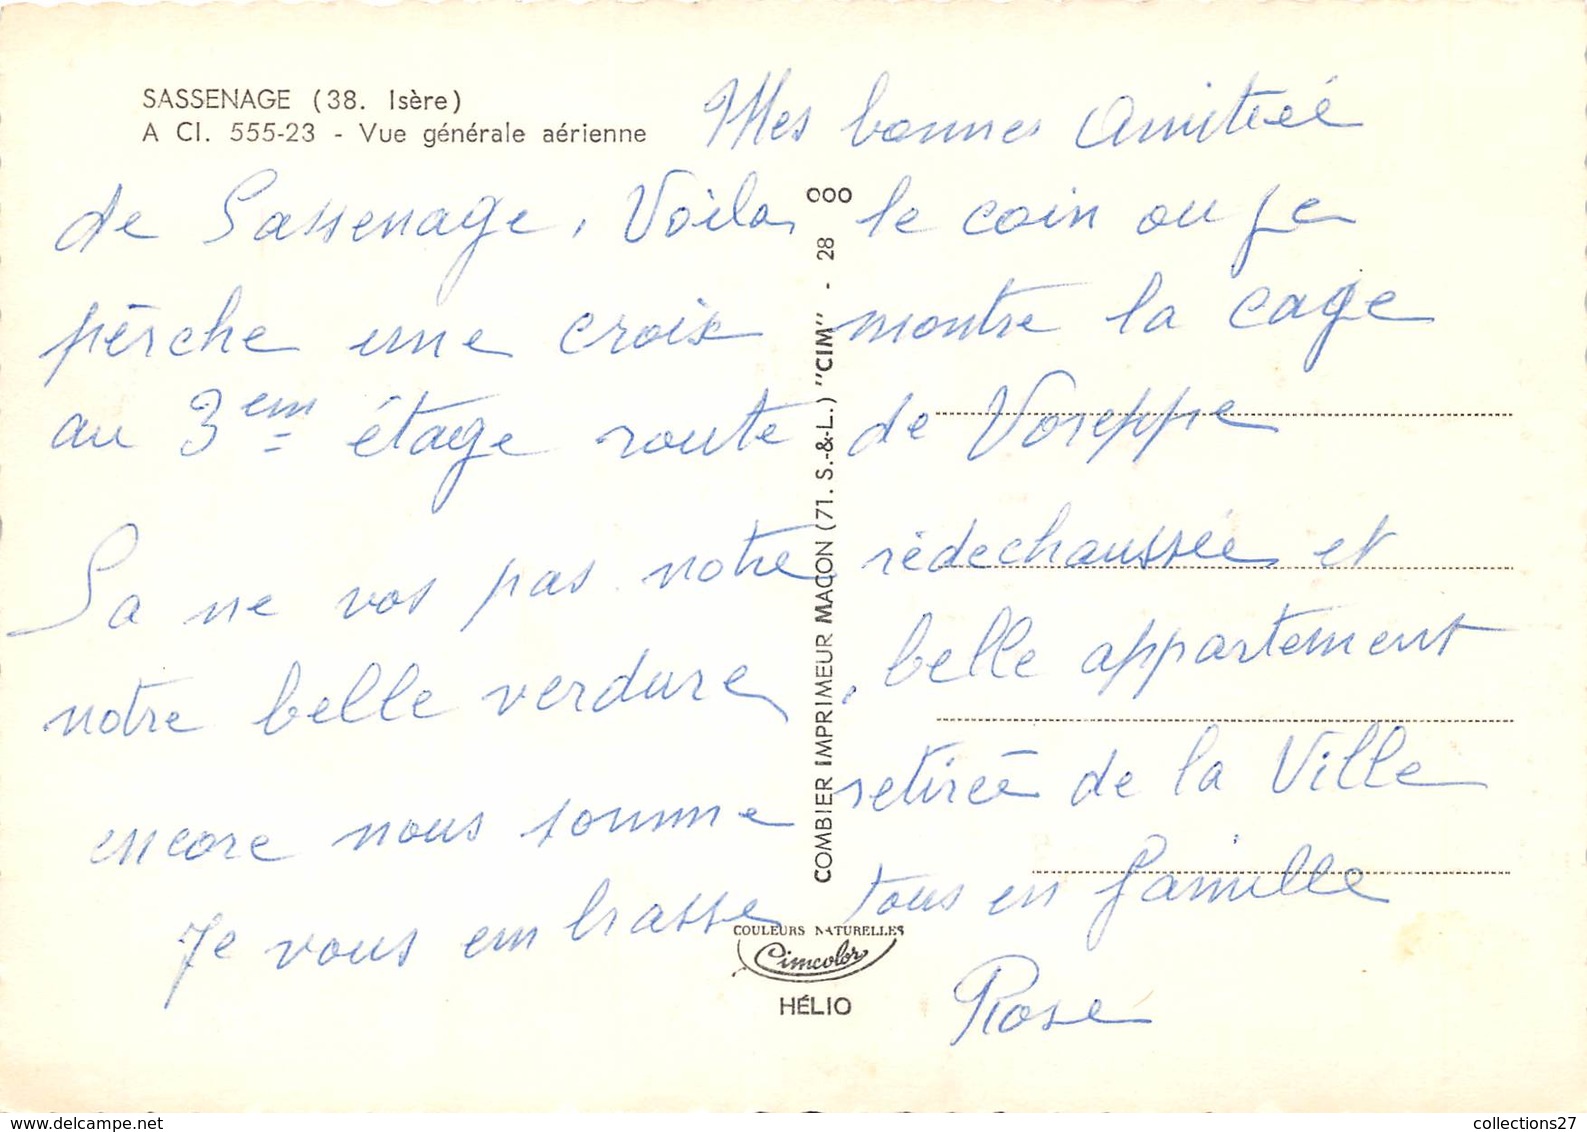 SASSENAGE (38. Isère)
A Cl. 555-23 - Vue générale aérienne
Mes bonnes Amitiéé
de Sassenage, Voila le coin ou je
pèrche une croix montre la cage
au 3em étage route de Voreppe
Sa ne vos pas notre rédechaussée et
notre belle verdure, belle appartement
encore nous somme retireé de la Ville
Je vous embrasse tous en famille
Rose
COMBIER IMPRIMEUR MACON (71. S.-&-L.) "CIM" - 28 000
COULEURS NATURELLES
Cimcolor
HÉLIO
collections27